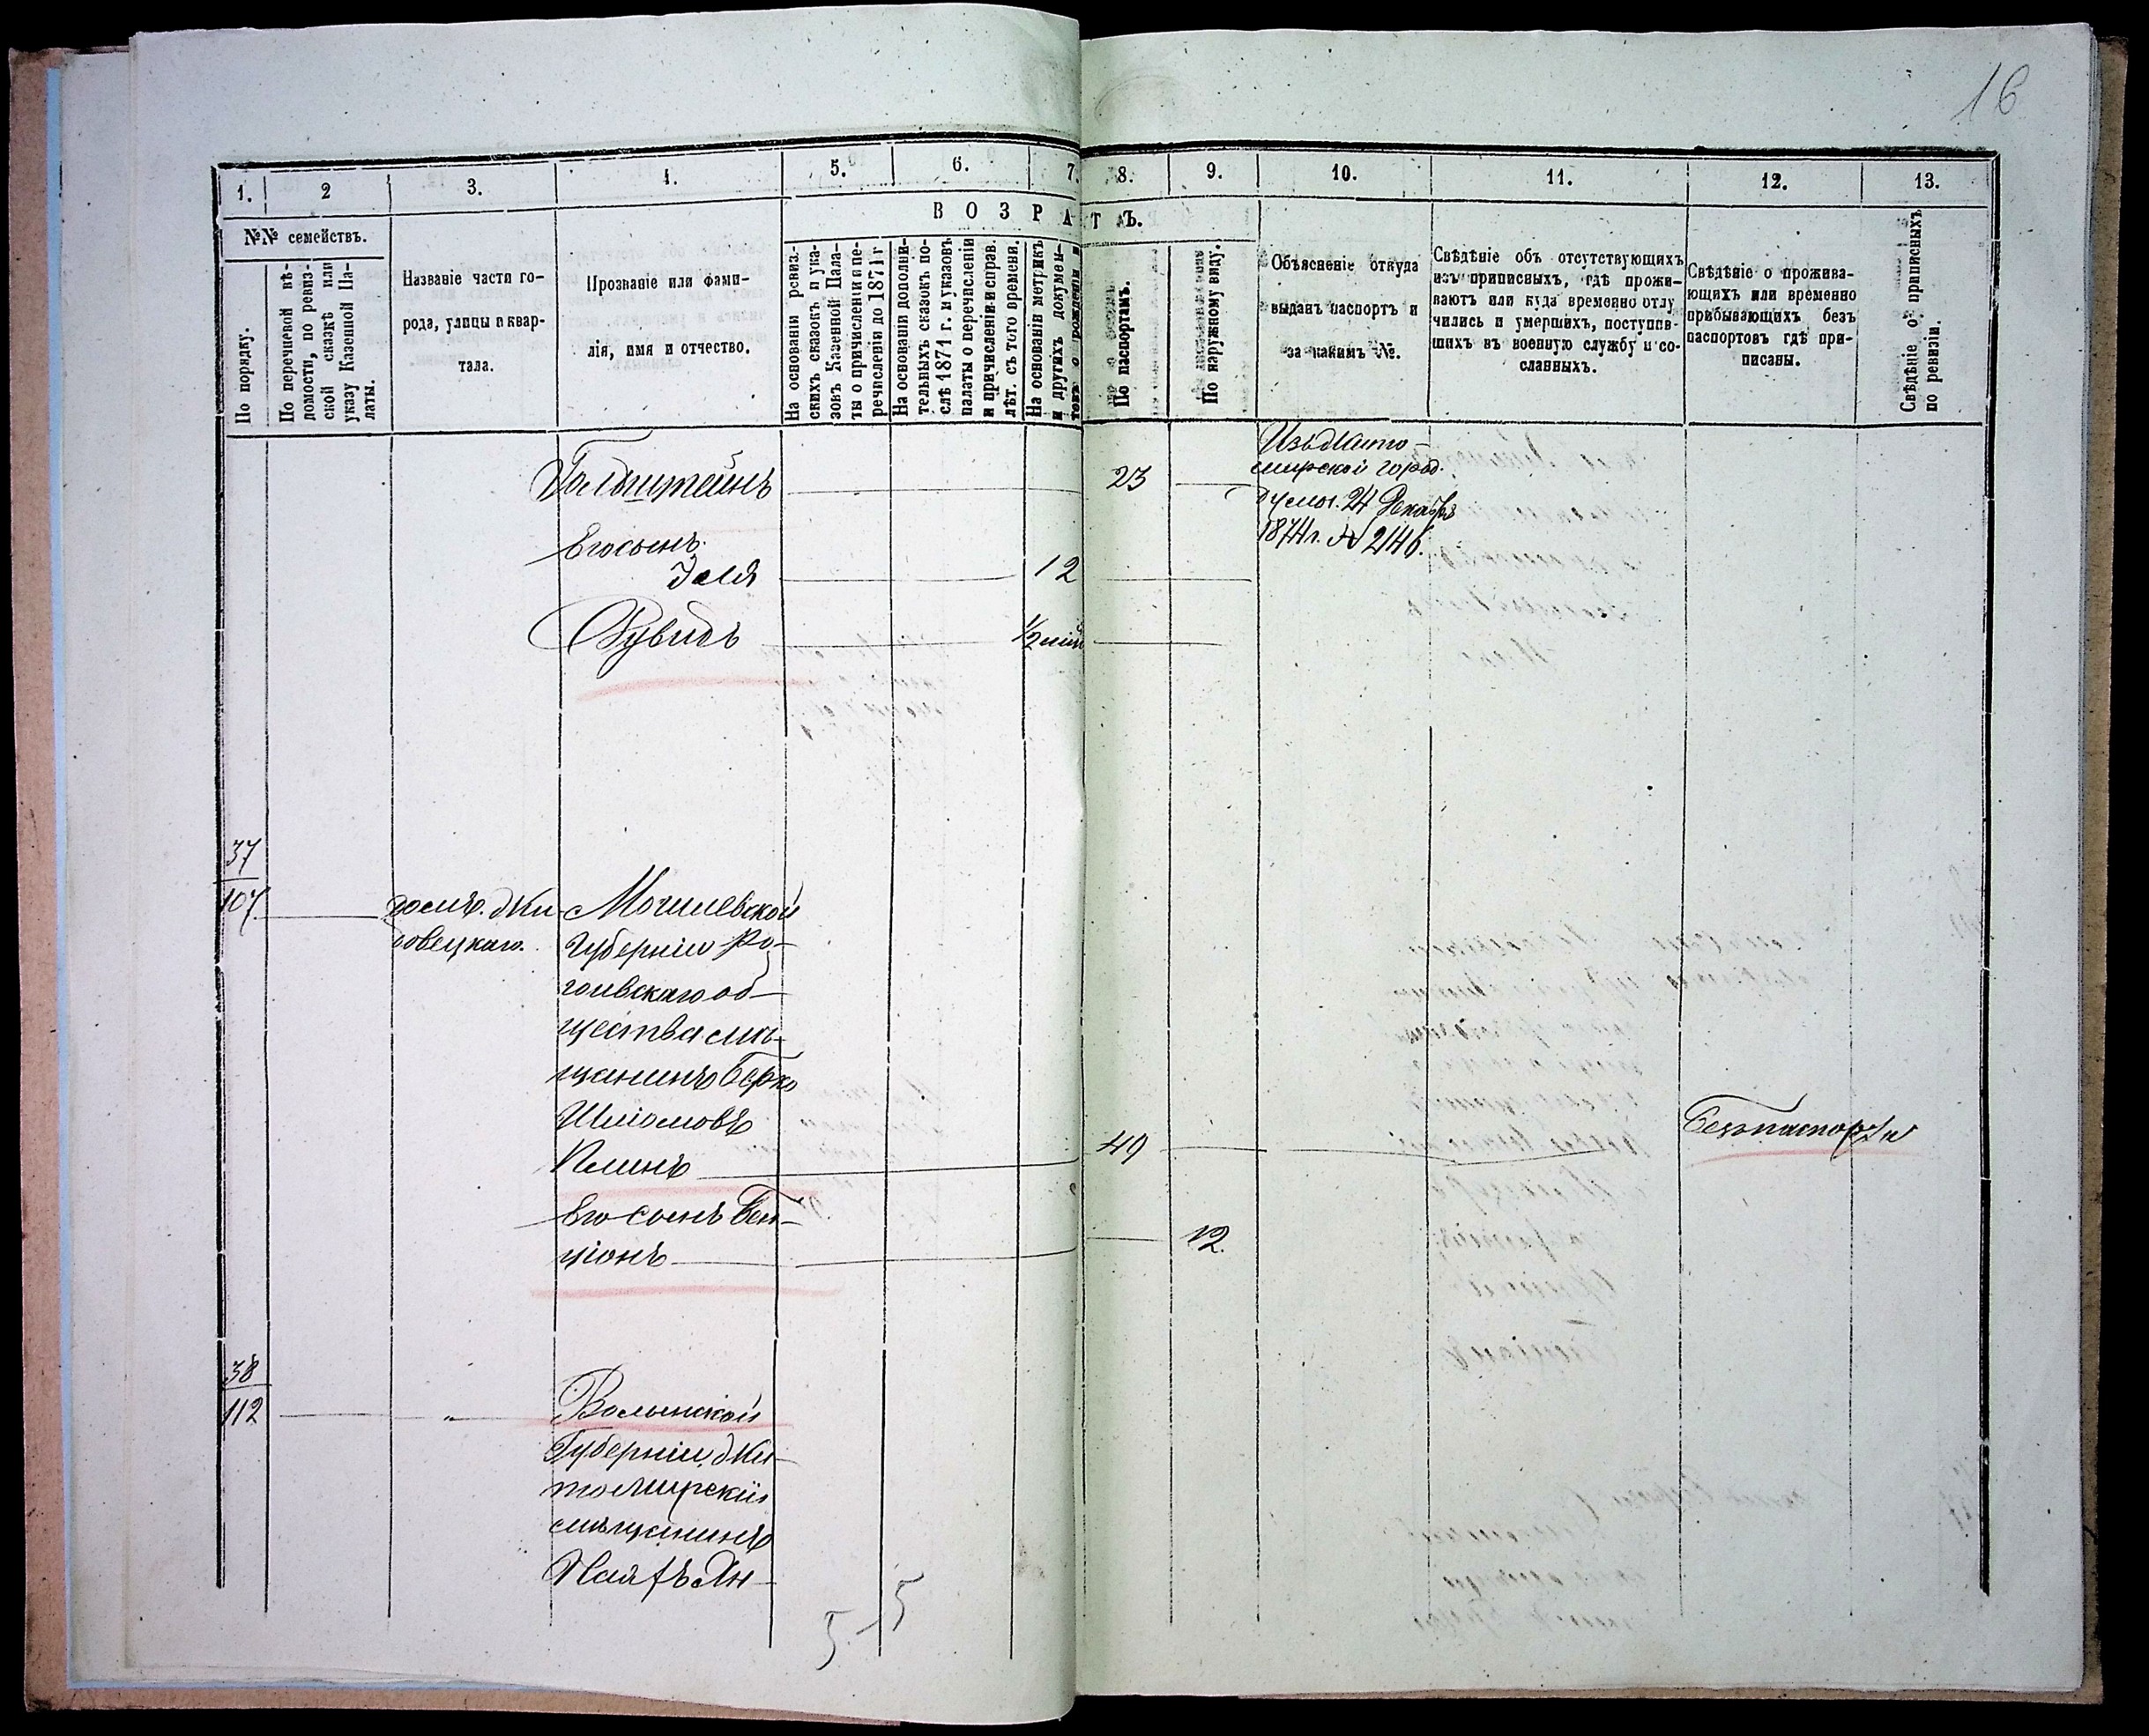 16
1. 2 3. 4. 5. 6. 7. 8. 9. 10. 11. 12. 13.
№№ семействъ.
По порядку.
По перечневой вѣ-
домости, по ревиз-
ской сказкѣ или
указу Казенной Па-
латы.
Названіе части го-
рода, улицы и квар-
тала.
Прозваніе или фами-
лія, имя и отчество.
ВОЗРАСТЪ.
На основаніи ревиз-
скихъ сказокъ и ука-
зовъ Казенной Пала-
ты о причисленіи и пе-
речисленіи до 1871 г
На основаніи дополни-
тельныхъ сказокъ по-
слѣ 1871 г. и указовъ
палаты о перечисленіи
и причисленіи и справ.
лѣт. съ того времени.
На основаніи метрикъ
и другихъ докумен-
товъ о рожденіи и
По паспортамъ.
По наружному виду.
Объясненіе откуда
выданъ паспортъ и
за какимъ №.
Свѣдѣніе объ отсутствующихъ
изъ приписныхъ, гдѣ прожи-
ваютъ или куда временно отлу
чились и умершихъ, поступив-
шихъ въ военную службу и со-
сланныхъ.
Свѣдѣніе о прожива-
ющихъ или временно
прибывающихъ безъ
паспортовъ гдѣ при-
писаны.
Свѣдѣніе о приписныхъ
по ревизіи.
Гольдштейнъ 23
Изъ Жито-
мирской город.
думы. 24 Декабря
1874 г. № 2146.
Его сынъ
Зеля 12
Дувидъ 1/2
37
107. Могилевской
губерніи Ро-
гачевскаго об-
щества мѣ-
щанинъ Берко
Шліомовъ
Клинъ 49 Безъ паспорта
Его сынъ Бен-
ціонъ 12.
38
112 " Волынской
Губерніи Жи-
томирскій
мѣщанинъ
5. 5